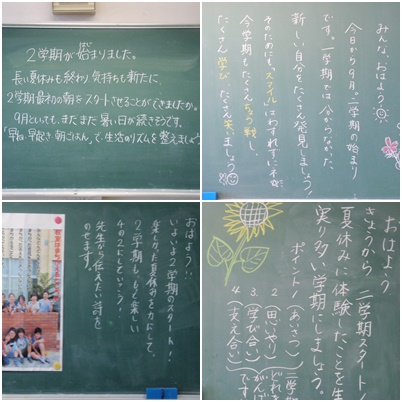 2学期が始まりました。
長い夏休みも終わり、気持ちも新たに、
2学期最初の朝をスタートさせることができましたか。
9月といっても、まだまだ暑い日が続きそうです。
「早ね・早起き・朝ごはん」で、生活のリズムを整えましょう
みんな、おはよう
今日から9月。二学期の始まり
です。一学期では分からなかった
新しい自分をたくさん発見しましょう!
そのためにも、スマイルにわすれずに
今学期もたくさんちょう戦し、
たくさん学び、たくさん笑いましょう
おはよう!!
いよいよ2学期のスタート!
楽しかった夏休みを力にして、
2学期も、もっと楽しい
4の2にしていこう!
先生から伝えたい詩を
のせます。
おはよう
きょうから二学期スタート!
夏休みに体験したことを生
実り多い学期にしましょう。
ポイント!
(あいさつ)
2 (思いやり)
3. (学び合い)
4 (支え合い)
二学期
どれを
がんば
です